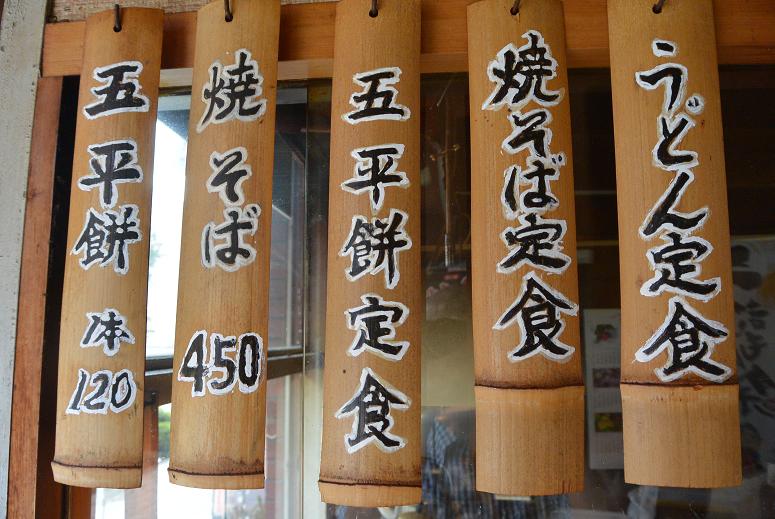 五平餅 一本 120
焼そば 450
五平餅定食
焼そば定食
うどん定食